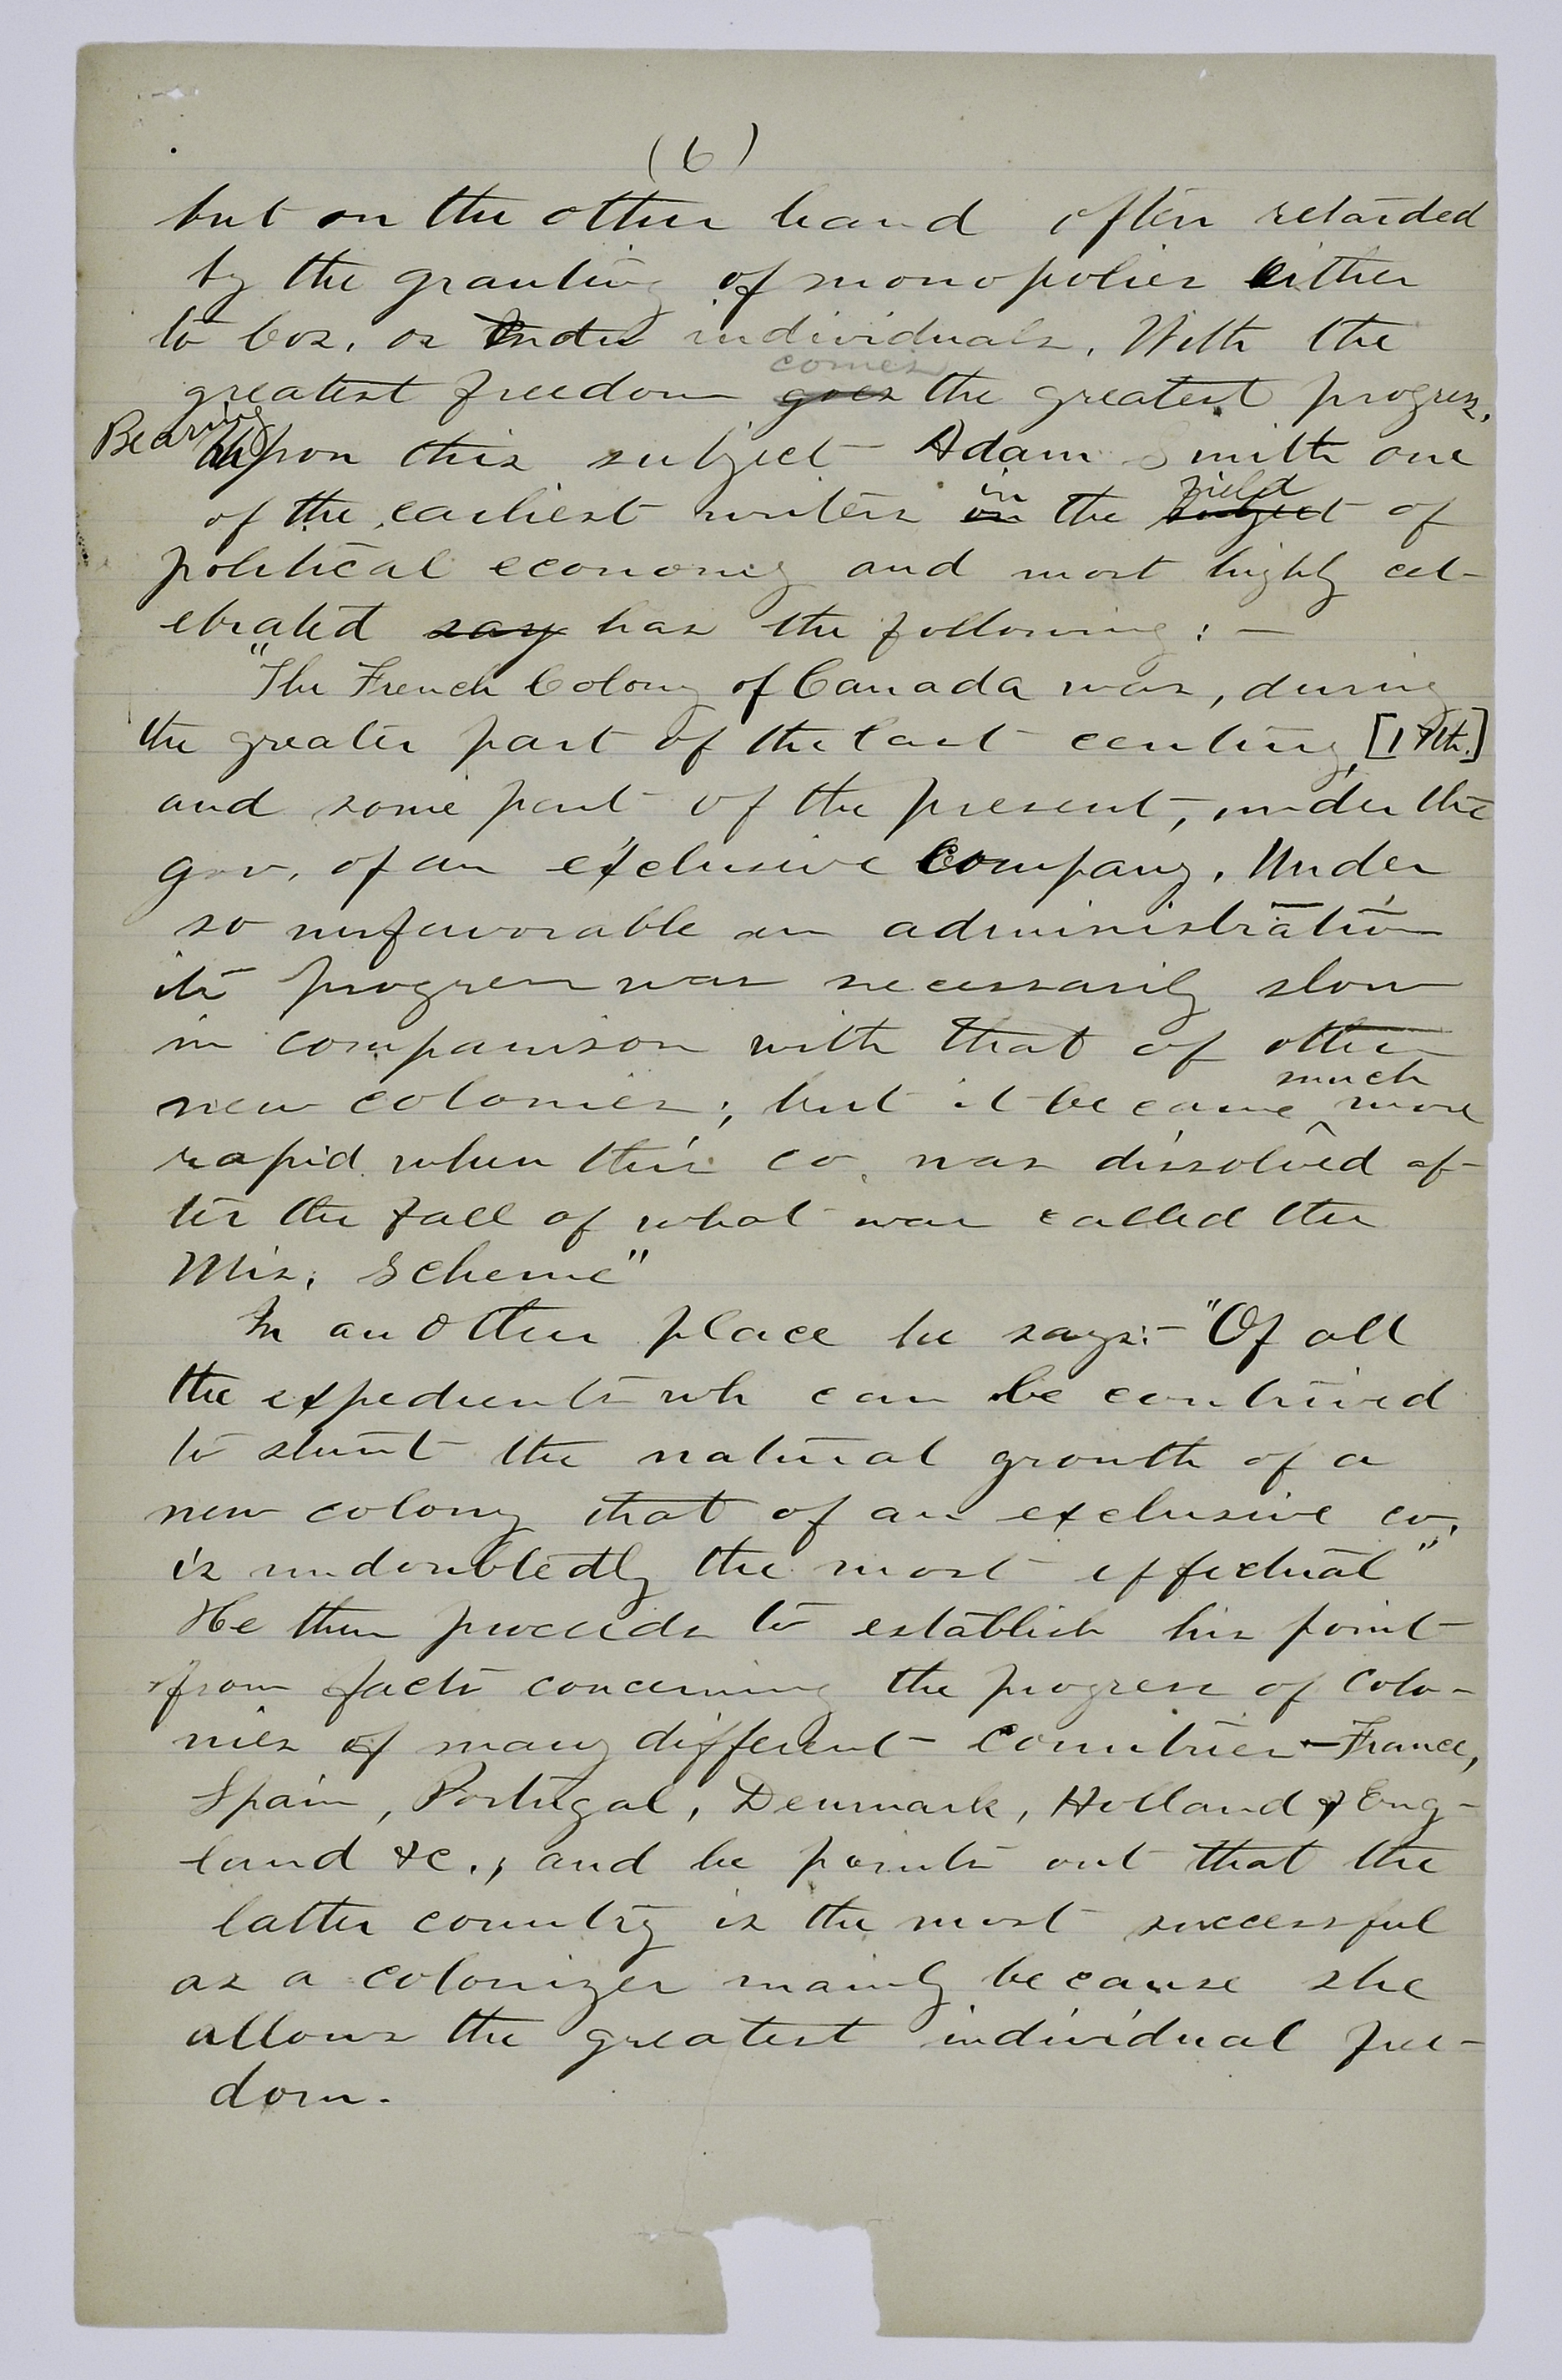 (6)
but on the other hand often retarded
by the granting of monopolies either
to Cos. or Indiv individuals. With the
comes
greatest freedom goes the greatest progress.
Bearing
upon this subject Adam Smith one
in field
of the earliest writers on the subject of
political economy and most highly cel-
ebrated say has the following: —
"The French Colony of Canada was, during
the greater part of the last century, [17th.]
and some part of the present, under the
gov. of an exclusive Company. Under
so unfavorable an administration
its progress was necessarily slow
in comparison with that of other
much
new colonies; but it became ^ more
rapid when this co. was dissolved af-
ter the fall of what was called the
Mis. Scheme"
In another place he says:- "Of all
the expedients wh can be contrived
to stunt the natural growth of a
new colony that of an exclusive co.
is undoubtedly the most effectual"
He then proceeds to establish his point
from facts concerning the progress of Colo-
nies of many different Countries — France,
Spain, Portugal, Denmark, Holland & Eng-
land &c., and he points out that the
latter country is the most successful
as a colonizer mainly because she
allows the greatest individual free-
dom.